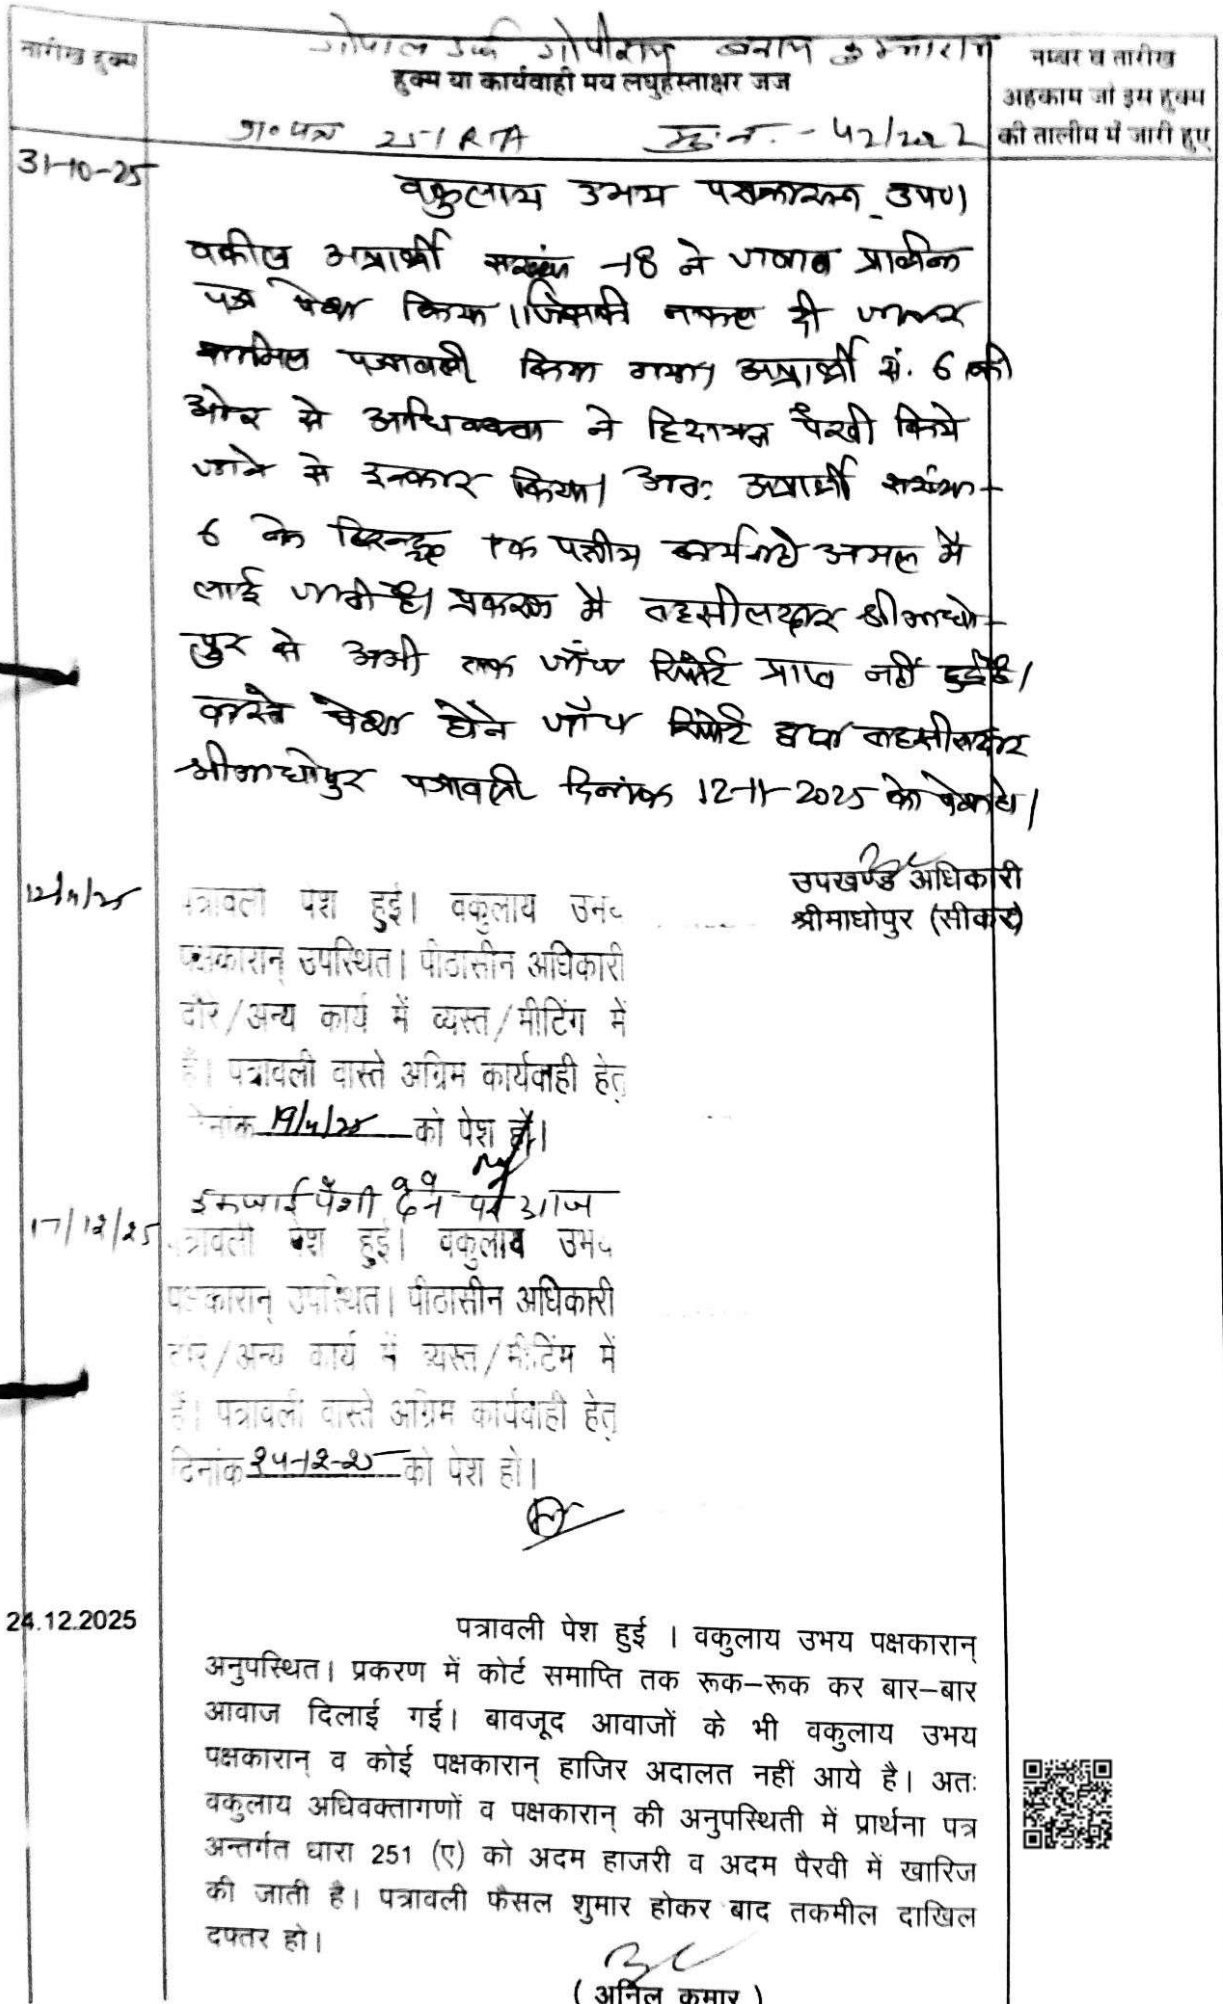 तारीख हुक्म
गोपाल उर्फ गोपीराम बनाम कुम्भाराम
हुक्म या कार्यवाही मय लघुहस्ताक्षर जज
नम्बर व तारीख
अहकाम जो इस हुक्म
की तालीम में जारी हुए
प्रा० पत्र 251 RTA मु.न. - 42/2022
31-10-25
वकुलाय उभय पक्षकारान उप०।
वकील अप्रार्थी संख्या -18 ने जवाब प्रार्थना
पत्र पेश किया। जिसकी नकल दी जाकर
शामिल पत्रावली किया गया। अप्रार्थी सं. 6 की
ओर से अधिवक्ता ने हिदायत पैरवी किये
जाने से इनकार किया। अतः अप्रार्थी संख्या-
6 के विरूद्ध एक पक्षीय कार्यवाही अमल में
लाई जाती है। प्रकरण में तहसीलदार श्रीमाधो-
पुर से अभी तक जाँच रिपोर्ट प्राप्त नहीं हुई है।
वास्ते पेश होने जाँच रिपोर्ट द्वारा तहसीलदार
श्रीमाधोपुर पत्रावली दिनांक 12-11-2025 को पेश हो।
उपखण्ड अधिकारी
श्रीमाधोपुर (सीकर)
12/11/25
पत्रावली पेश हुई। वकुलाय उभय
पक्षकारान् उपस्थित। पीठासीन अधिकारी
दौरे/अन्य कार्य में व्यस्त/मीटिंग में
हैं। पत्रावली वास्ते अग्रिम कार्यवाही हेतु
दिनांक 19/11/25 को पेश हो।
पेशी देने पर आज
17/12/25
पत्रावली पेश हुई। वकुलाय उभय
पक्षकारान् उपस्थित। पीठासीन अधिकारी
दौरे/अन्य कार्य में व्यस्त/मीटिंग में
हैं। पत्रावली वास्ते अग्रिम कार्यवाही हेतु
दिनांक 24-12-25 को पेश हो।
24.12.2025
पत्रावली पेश हुई । वकुलाय उभय पक्षकारान्
अनुपस्थित। प्रकरण में कोर्ट समाप्ति तक रूक–रूक कर बार–बार
आवाज दिलाई गई। बावजूद आवाजों के भी वकुलाय उभय
पक्षकारान् व कोई पक्षकारान् हाजिर अदालत नहीं आये है। अतः
वकुलाय अधिवक्तागणों व पक्षकारान् की अनुपस्थिती में प्रार्थना पत्र
अन्तर्गत धारा 251 (ए) को अदम हाजरी व अदम पैरवी में खारिज
की जाती है। पत्रावली फैसल शुमार होकर बाद तकमील दाखिल
दफ्तर हो।
( अनिल कुमार )